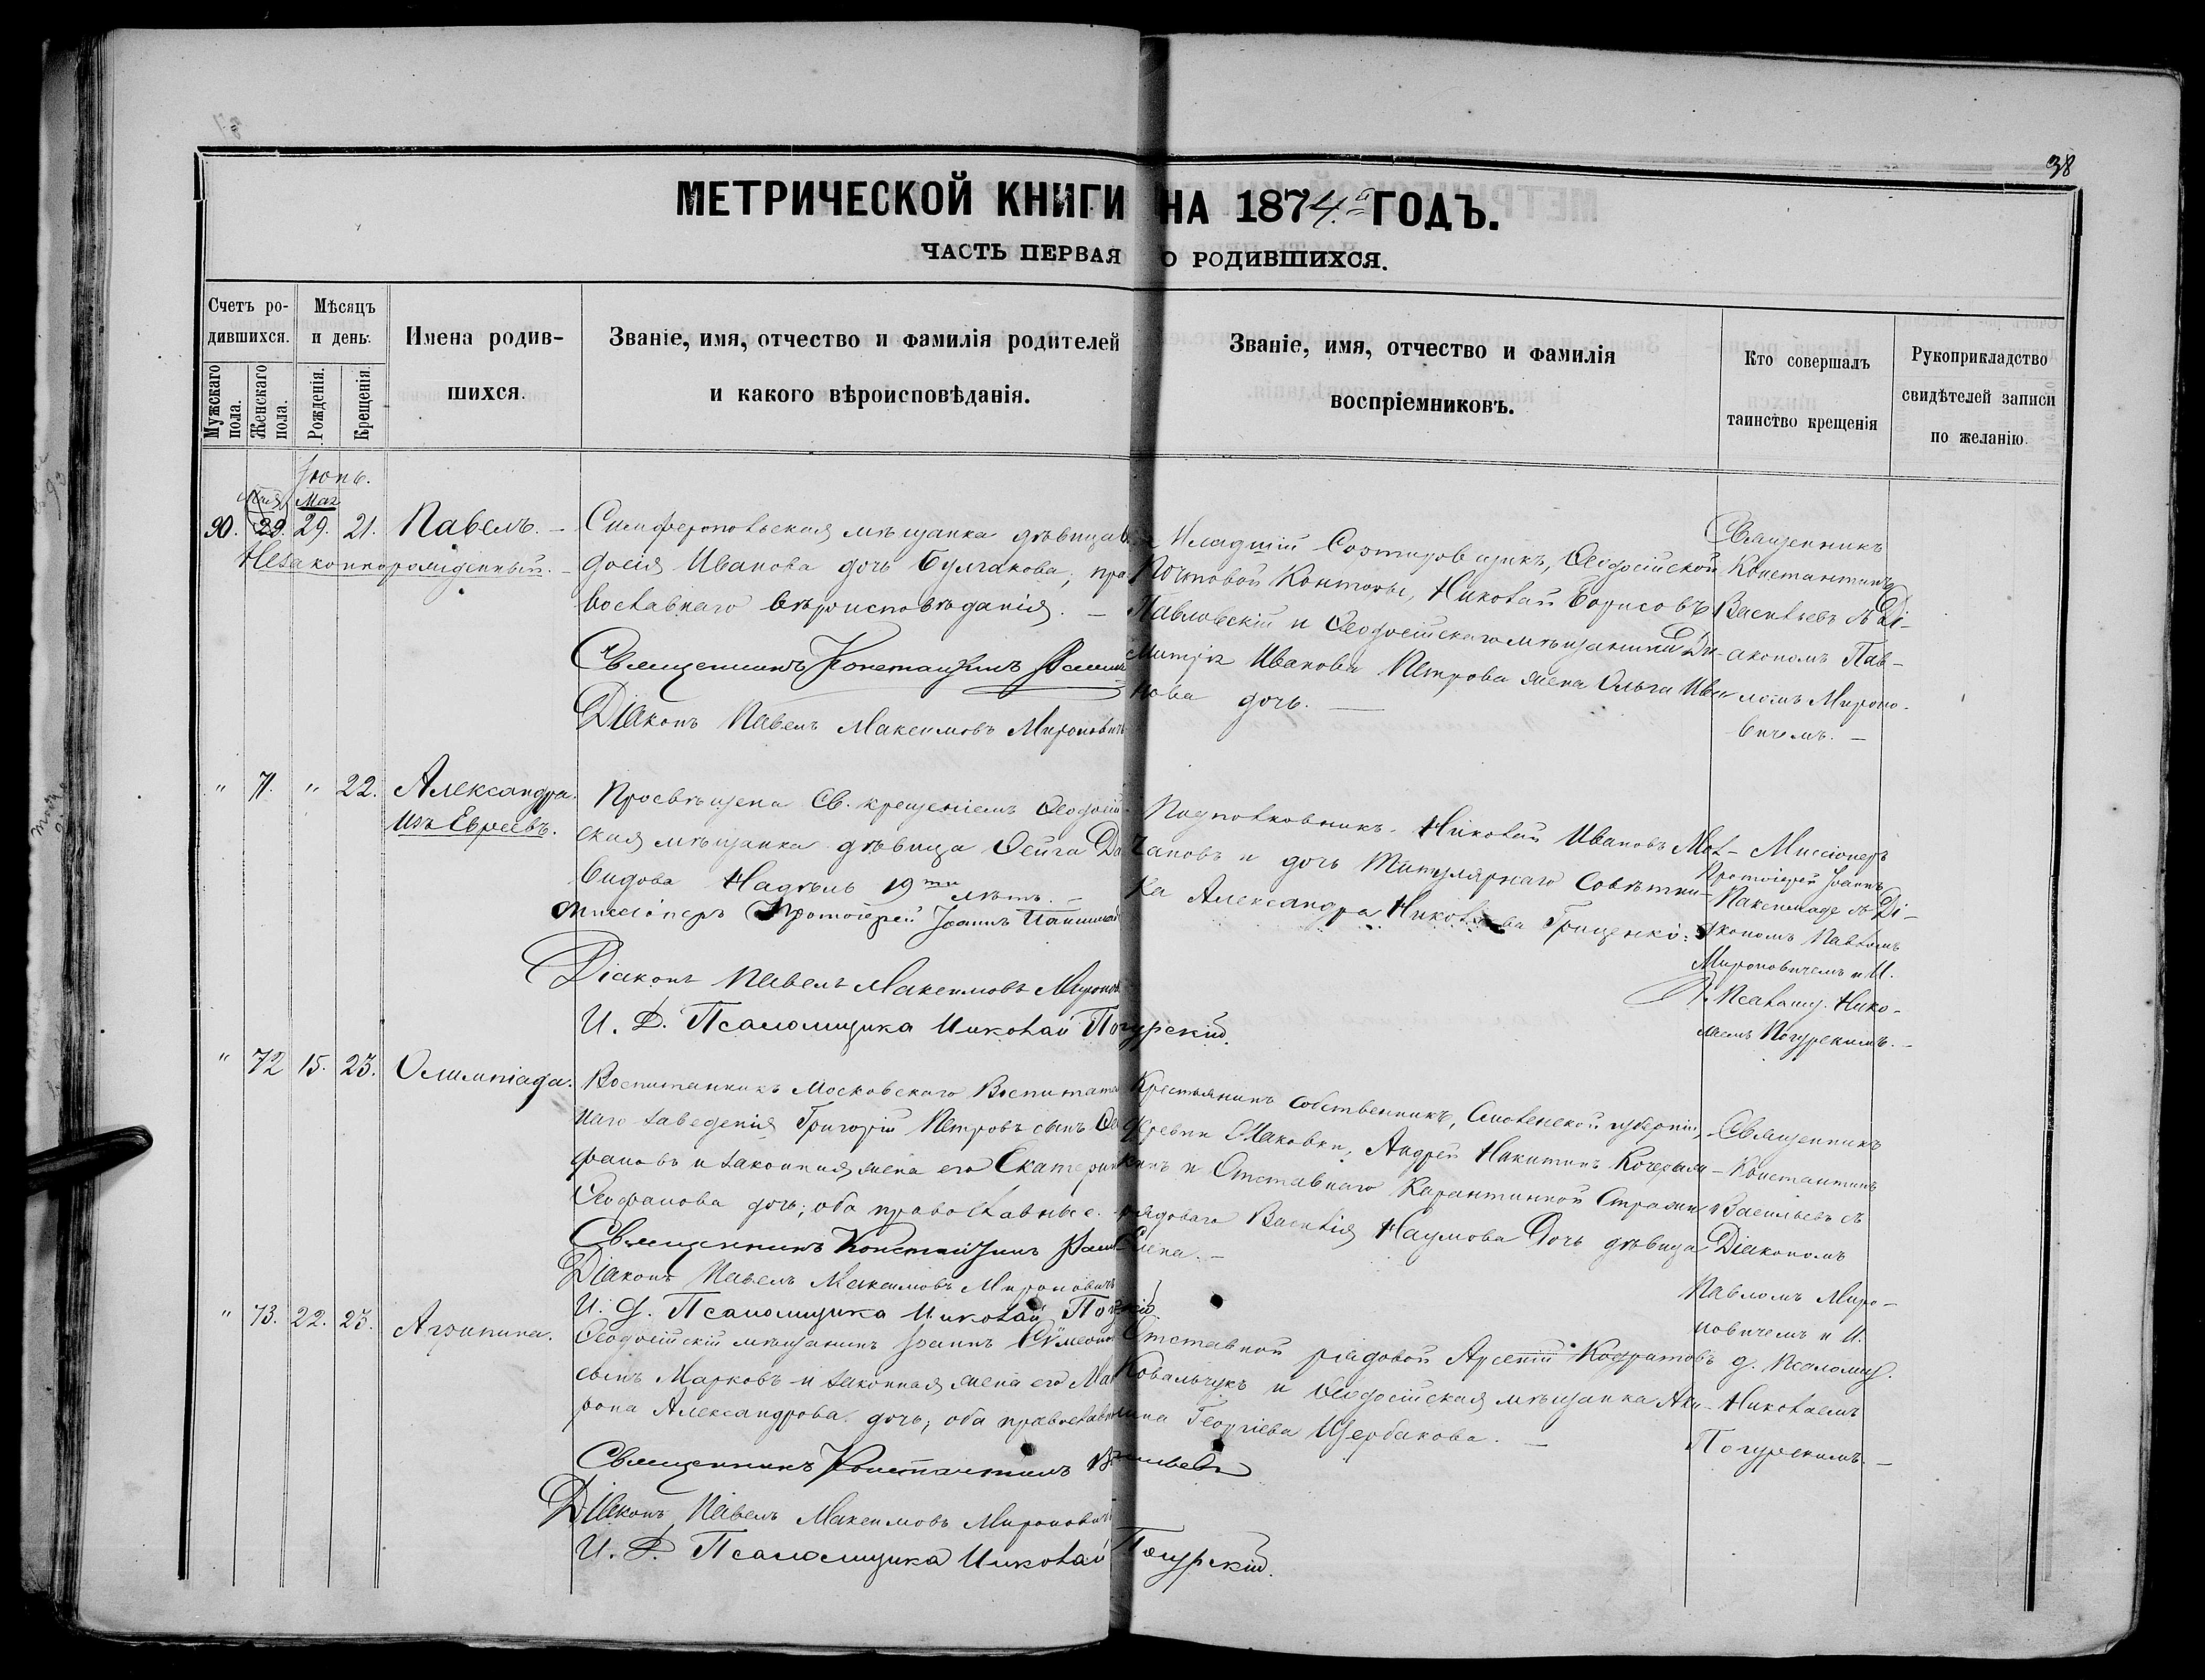 38
МЕТРИЧЕСКОЙ КНИГИ НА 1874.й ГОДЪ.
ЧАСТЬ ПЕРВАЯ О РОДИВШИХСЯ.
Счетъ ро-
дившихся.
Мужскаго
пола.
Женскаго
пола.
Мѣсяцъ
и день.
Рожденія.
Крещенія.
Имена родив-
шихся.
Званіе, имя, отчество и фамилія родителей
и какого вѣроисповѣданія.
Званіе, имя, отчество и фамилія
воспріемниковъ.
Кто совершалъ
таинство крещенія
Рукоприкладство
свидѣтелей записи
по желанію.
Іюнь.
Мая
90. 29. 29. 21. Павелъ. –
Незаконнорожденный. –
Симферопольская мѣщанка дѣвица
досія Иванова дочь Булгакова; пра
вославнаго вѣроисповѣданія. –
Священникъ Константинъ
Діаконъ Павелъ Максимовъ Мироновичъ
Младшій Сортировщикъ, Ѳеодосійской
Почтовой Конторы, Николай Борисовъ
Павловскій и Ѳеодосійскаго мѣщанина Ди-
митрія Иванова Петрова жена Ольга Ива-
нова дочь. –
Священникъ
Константинъ
Васильевъ съ Ді-
акономъ Пав-
ломъ Мироно-
вичемъ. –
" 71. " 22. Александра.
Изъ Евреевъ.
Просвѣщена Св. крещеніемъ Ѳеодосій
ская мѣщанка дѣвица Фейга Да
видова Надѣль 19ти лѣтъ. –
Миссіонеръ Протоіерей Іоаннъ
Діаконъ Павелъ Максимовъ
И. Д. Псаломщика Николай Погурскій.
Подполковникъ Николай Ивановъ Мол-
чановъ и дочь Титулярнаго Совѣтни-
ка Александра Николаева Гриценко.
Миссіонеръ
Протоіерей Іоаннъ
съ Ді-
акономъ Павломъ
Мироновичемъ и И.
Д. Псаломщ. Нико-
лаемъ Погурскимъ. –
" 72 15. 23. Олимпіада.
Воспитанникъ Московскаго Воспитате
наго заведенія Григорій Петровъ сынъ Ѳео
фановъ и законная жена его Екатерина
Ѳеофанова дочь; оба православные.
Священникъ Константинъ
Діаконъ Павелъ Максимовъ Мироновичъ
И. д. Псаломщика Николай
Крестьянинъ собственникъ, Смоленской губерніи,
деревни Маковки, Андрей Никитинъ
и Отставнаго Карантинной Стражи
рядоваго Василія Наумова дочь дѣвица
Елена. –
Священникъ
Константинъ
Васильевъ съ
Діакономъ
Павломъ Миро-
новичемъ и И.
д. Псаломщ.
Николаемъ
Погурскимъ. –
" 73. 22. 23. Агрипина.
Ѳеодосійскій мѣщанинъ Іоаннъ Сѵмеоновъ
сынъ Марковъ и законная жена его Мат
рона Александрова дочь; оба православн
Священникъ Константинъ Васильевъ
Діаконъ Павелъ Максимовъ Мироновичъ
И. Д. Псаломщика Николай Погурскій.
Отставной рядовой Арсеній Кодратовъ
Ковальчукъ и Ѳеодосійская мѣщанка Аки-
лина Георгіева Щербакова. –